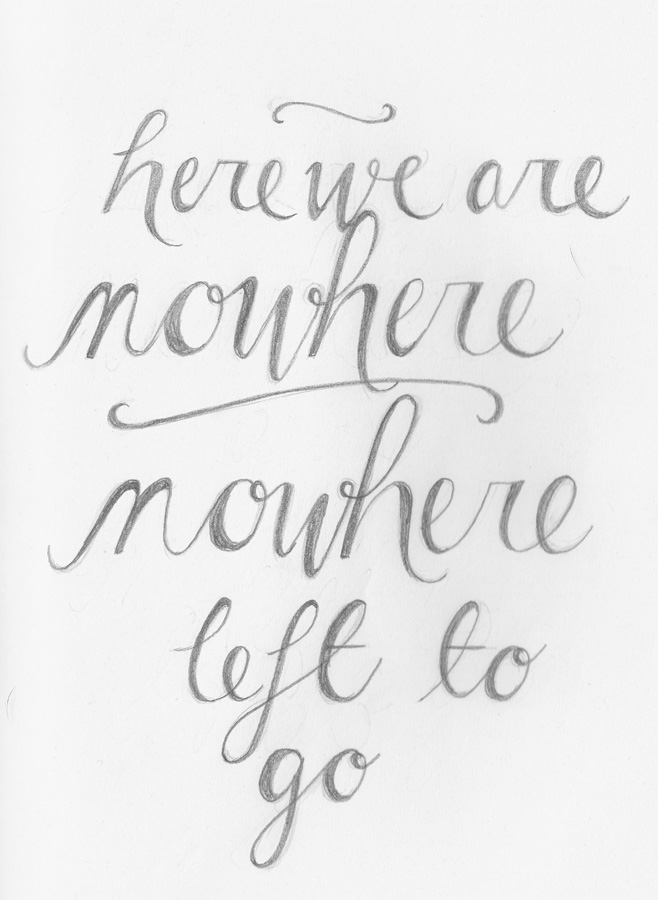 here we are
nowhere
nowhere
left to
go